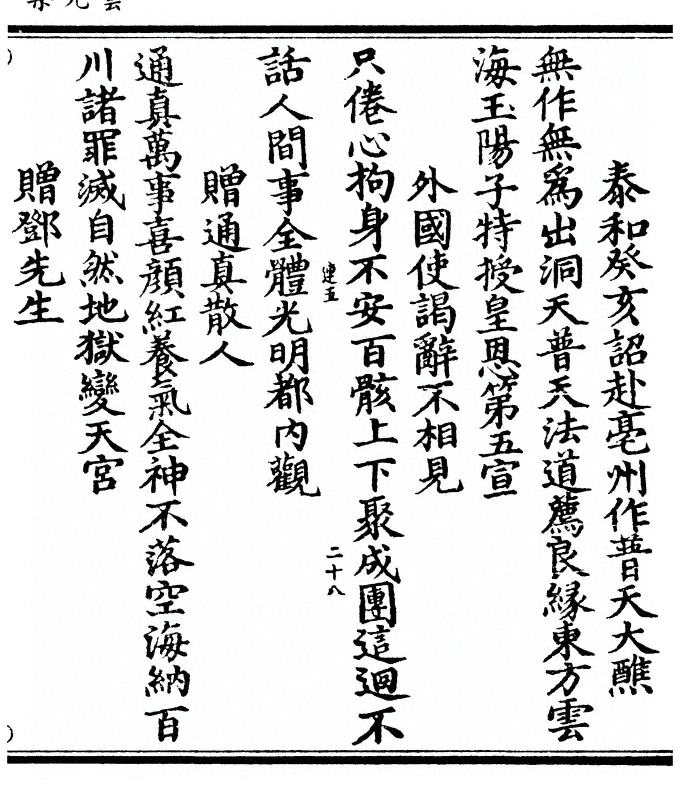 泰和癸亥詔赴亳州作普天大醮
無作無爲出洞天普天法道薦良縁東方雲
海玉陽子特授皇恩第五宣
外國使謁辭不相見
只倦心拘身不安百骸上下聚成團這迴不
連五
二十八
話人間事全體光明都内觀
贈通真散人
通真萬事喜顔紅養氣全神不落空海納百
川諸罪滅自然地獄變天宮
贈鄧先生